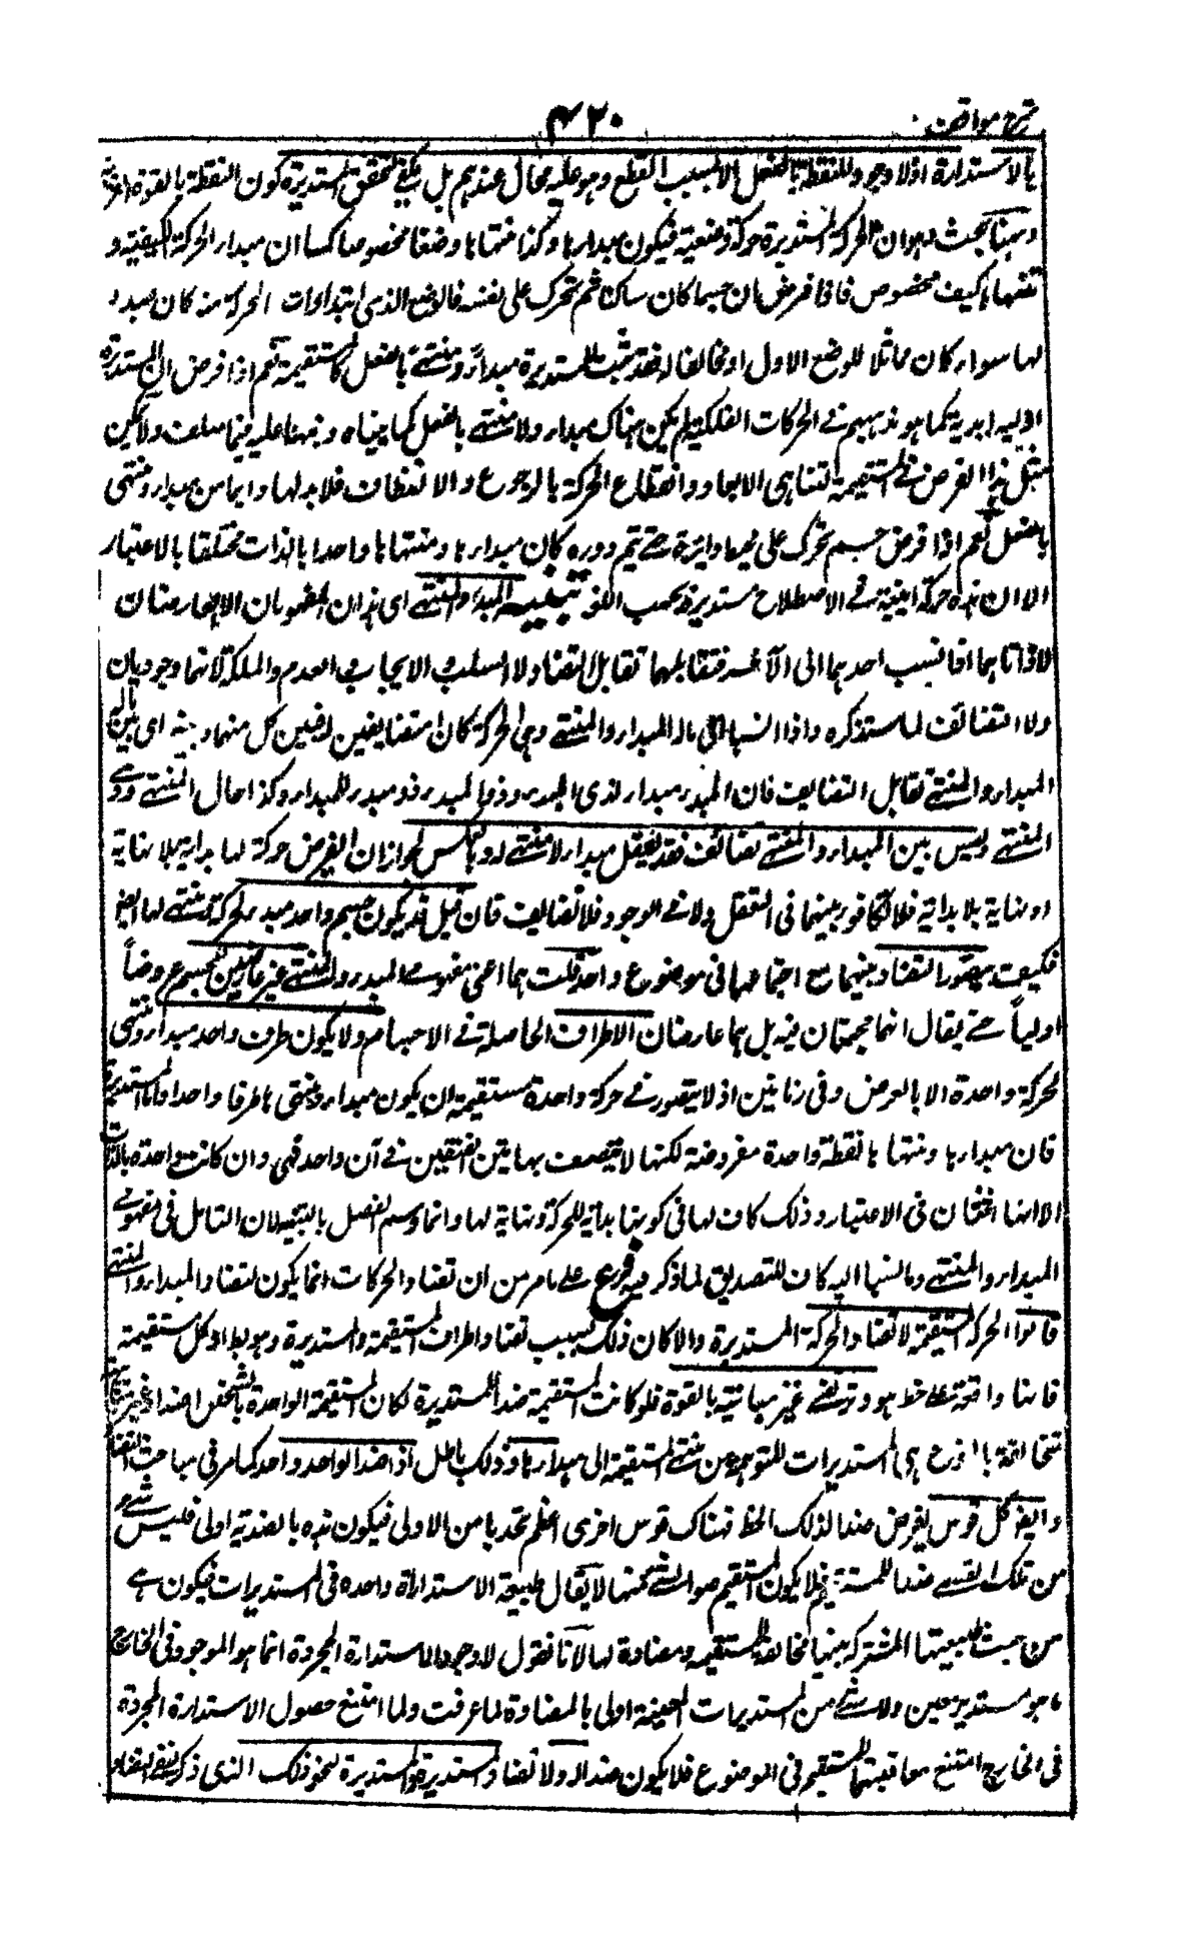 شرح مواقف
۴۲۰
بالاستدارة اذ لا وجود للنقطة بالفعل الا بسبب القطع وهو عليه محال عندهم بل يكفي لتحقق المستديرة كون النقطة بالقوة
وههنا بحث وهو ان الحركة المستديرة حركة وضعية فيكون مبدارها وكذا منتهاها وضعا مخصوصا كما ان مبدار الحركة الكيفية و
منتهاها كيف مخصوص فاذا فرض ان جسما كان ساكنا ثم تحرك على نفسه فالوضع الذي ابتداوات الحركة منه كان مبدء
لها سواء كان مماثلا للوضع الاول او مخالفا له فقد ثبت للمستديرة مبدأ ومنتهى بالفعل كالمستقيمة نعم اذا فرض ان المستديرة
ازلية ابدية كما هو مذهبهم في الحركات الفلكية لم يكن هناك مبدار ولا منتهى بالفعل كما بيناه ونبهنا عليه فيما سلف ولا يمكن
مثل هذا الفرض في المستقيمة لتناهي الابعاد وانقطاع الحركة بالرجوع والانعطاف فلا بد لها دايما من مبدار ومنتهى
بالفعل نعم اذا فرض جسم تحرك على محيط دائرة حتى تتم دوره كان مبدارها ومنتهاها واحدا بالذات مختلفا بالاعتبار
الا ان هذه حركة اينية في الاصطلاح مستديرة بحسب اللغة تنبيه المبدأ والمنتهى اي هذان المفهومان الا العارضان
لا ذاتاهما اذا نسب احدهما الى الآخر فتقابلهما تقابل التضاد لا السلب والايجاب والعدم والملكة لانهما وجوديان
ولا التضائف لما ستذكره واذا انسبا الى ماله المبدار والمنتهى وهي الحركة كان متضايفين لذين كل منهما وبينه اي بين ماله
المبدار والمنتهى تقابل التضايف فان المبدء مبدار لذي المبدء وذو المبدء ذو مبدء للمبدار وكذا حال المنتهى وذي
المنتهى وليس بين المبدار والمنتهى تضائف فقد يعقل مبدار لا منتهى له وبالعكس لجواز ان يفرض حركة لها بداية بلا نهاية
او نهاية بلا بداية فلا تكافؤ بينهما في التعقل ولا في الوجود فلا تضايف فان قيل قد يكون جسم واحد مبدء لحركة ومنتهى لها ايضا
فكيف يتصور التضاد بينهما مع اجتماعهما في موضوع واحد قلت هما اعني مفهومي المبدء والمنتهى غير عارضين للجسم عروضا
اوليا حتى يقال انهما مجتمعان فيه بل هما عارضان الاطراف الحاصلة في الاجسام ولا يكون طرف واحد مبدار ومنتهى
لحركة واحدة الا بالعرض وفي زمانين اذ لا يتصور في حركة واحدة مستقيمة ان يكون مبدار ومنتهى ها طرفا واحدا واما المستديرة
فان مبدارها ومنتهاها نقطة واحدة مفروضة لكنها لا تتصف بهاتين الصفتين في آن واحد فهي وان كانت واحدة بالذات
الا انها اثنتان في الاعتبار وذلك كاف لها في كونها بداية للحركة ونهاية لها وانما وسم الفصل بالتنبيه لان التامل في مفهومي
المبدار والمنتهى وما نسبا اليه كان للتصديق لما ذكر فيه فرع على ما مر من ان تضاد الحركات انما يكون لتضاد المبدار والمنتهى
قالوا الحركة المستقيمة لا تضاد الحركة المستديرة والا كان ذلك لسبب تضاد اطراف المستقيمة والمستديرة وهو بط اذ كل مستقيمة
فانها واقعة على خط هو وتر لقسي غير متناهية بالقوة فلو كانت المستقيمة ضدا للمستديرة لكان للمستقيمة الواحدة بالشخص اضداد غير
متخالفة بالنوع هي المستديرات المتوهمة من منتهى المستقيمة الى مبدارها وذلك باطل اذ ضد الواحد واحد كما مر في مباحث التضاد
وايضا كل قوس يفرض ضدا لذلك الخط فهناك قوس اخرى اعظم تحدبا من الاولى فيكون هذه بالضدية اولى فليس شيء
من تلك القسي ضدا للمستقيم فلا يكون المستقيم ضدا لشيء منها لا يقال طبيعة الاستدارة واحدة في المستديرات فيكون هي
من حيث طبيعتها المشتركة بينها مخالفة للمستقيمة ومضادة لها لانا نقول لا وجود للاستدارة المجردة انما هو الموجود في الخارج
ما هو مستدير معين ولا شيء من المستديرات المعينة اولى بالمضادة لما عرفت ولما امتنع حصول الاستدارة المجردة
في الخارج امتنع معاقبتها للمستقيم في الموضوع فلا يكون ضدا له ولا تضاد المستديرة المستديرة لنحو ذلك الذي ذكر في التضاد